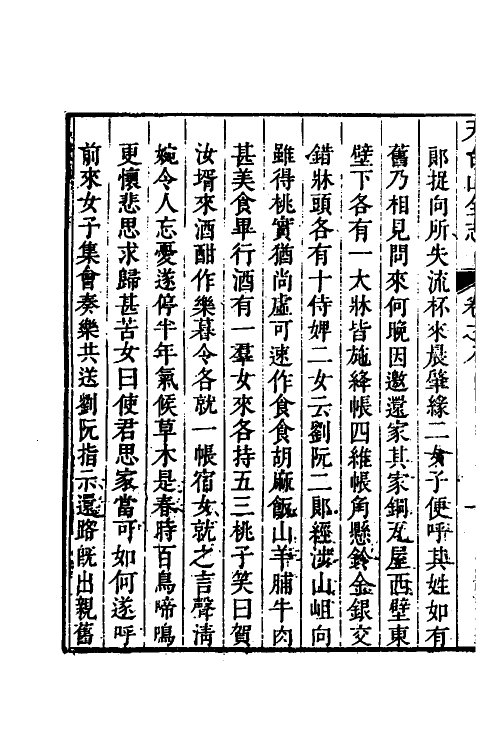 天台山全志
卷之
郎捉向所失流杯來晨肇緣二女子便呼其姓如有
舊乃相見問來何晚因邀還家其家銅瓦屋西壁東
壁下各有一大牀皆施絳帳四維帳角懸鈴金銀交
錯牀頭各有十侍婢二女云劉阮二郎經涉山岨向
雖得桃實猶尚虛可速作食食胡麻飯山羊脯牛肉
甚美食畢行酒有一羣女來各持五三桃子笑曰賀
汝壻來酒酣作樂暮令各就一帳宿女就之言聲清
婉令人忘憂遂停半年氣候草木是春時百鳥啼鳴
更懷悲思求歸甚苦女曰使君思家當可如何遂呼
前來女子集會奏樂共送劉阮指示還路旣出親舊